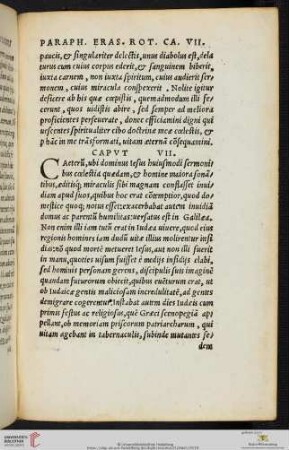 PARAPH. ERAS. ROT. CA. VII.
paucis, & singulariter delectis, unus diabolus est, dela
turus eum cuius corpus ederit, & sanguinem biberit,
iuxta carnem, non iuxta spiritum, cuius audierit ser
monem, cuius miracula conspexerit. Nolite igitur
desicere ab his quæ cœpistis, quemadmodum illi fe
cerunt, quos uidistis abire, sed semper ad meliora
proficientes perseuerate, donec efficiamini digni qui
uescentes spiritualiter cibo doctrinæ meæ cœlestis, &
per hanc in me trãsformati, uitam æternã cõsequamini.
CAPVT VII.
CAeterũ, ubi dominus Iesus huiusmodi sermoni
bus cœlestia quædam, & homine maiora sonã
tibus, editisq; miraculis sibi magnam conflasset inui
diam apud suos, quibus hoc erat cõtemptior, quod do
mestice quoq; notus esset: exacerbabat autem inuidiã
domus ac parentũ humilitas: uersatus est in Galilæa.
Non enim illi iam tutũ erat in Iudæa uiuere, quod eius
regionis homines iam dudũ uitæ illius molirentur insi
dias: nõ quod mortẽ metueret Iesus, aut non illi fuerit
in manu, quoties uisum fuisset è medijs insidijs elabi,
sed hominis personam gerens, discipulis suis imaginẽ
quandam futurorum obiecit, quibus euẽturum erat, ut
ob Iudaicæ gentis maliciosam incredulitatẽ, ad gentes
demigrare cogerentur. Instabat autem dies Iudæis cum
primis festus ac religiosus, quẽ Græci scenopegiã ap
pellant, ob memoriam priscorum patriarcharum, qui
uitam agebant in tabernaculis, subinde mutantes se/
dem